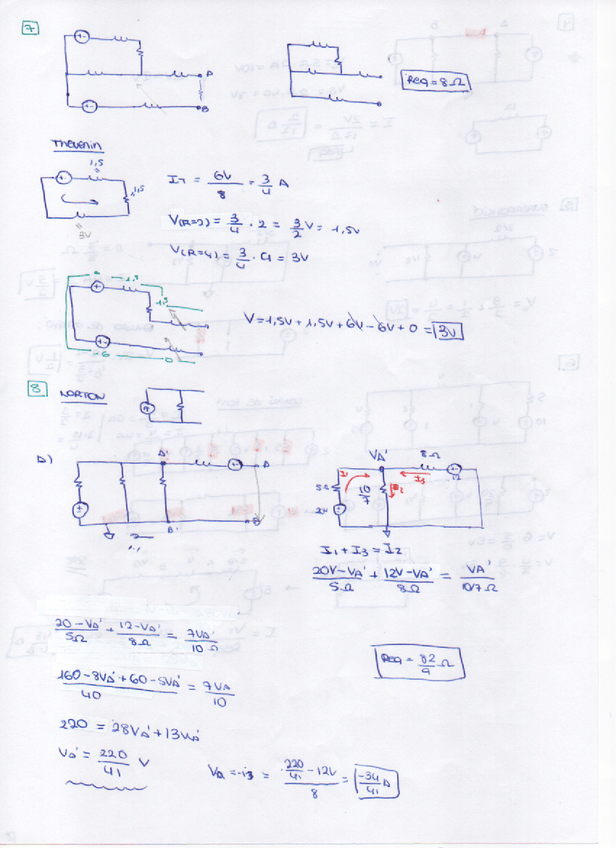 7
A
B
REQ = 8Ω
Thevenin
1,5
1,5
3V
I_T = 6V/8 = 3/4 A
V(R=2) = 3/4 · 2 = 3/2 V = 1,5V
V(R=4) = 3/4 · 4 = 3V
0
-1,5
-1,5
-6
0
V = 1,5V + 1,5V + 6V - 6V + 0 = 3V
8
NORTON
A'
A
B'
B
VA'
8Ω
I1
I3
I2
5Ω
10/7
12
I1 + I3 = I2
20V-VA'/5Ω + 12V-VA'/8Ω = VA'/10/7Ω
20-VA'/5Ω + 12-VA'/8Ω = 7VA'/10Ω
REQ = 82/9 Ω
160-8VA'+60-5VA'/40 = 7VA/10
220 = 28VA' + 13VA'
VA' = 220/41 V
= -i3 = 220/41 - 12V/8 = -34/41 A